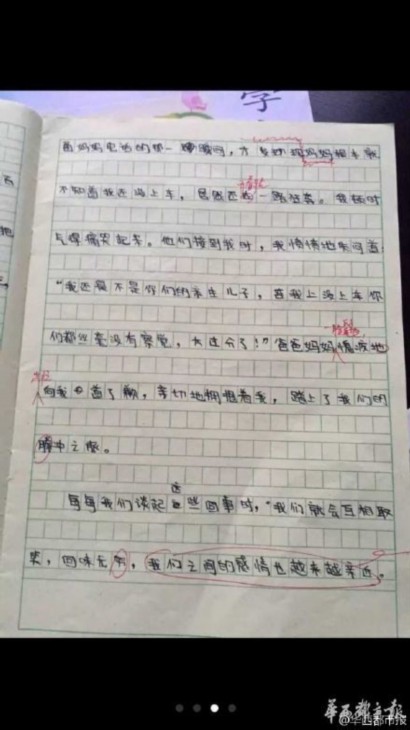 学
面妈妈电话的那一瞬间，才
妈妈
不知道我还没上车，居然
一路狂奔。我顿时
气得痛哭起来。他们接到我时，我愤愤地
“我还是不是你们的亲生儿子，
我上没上车你
们都丝毫没有察觉，太过分了！”爸爸妈妈
地
向我
首了歉，亲切地拥抱着我，踏上了我们的
之旅。
每每我们谈起这些
事时，“我们就会互相取
笑，回味无穷，我们之间的感情也越来越亲近。
华西都市报
@华西都市报